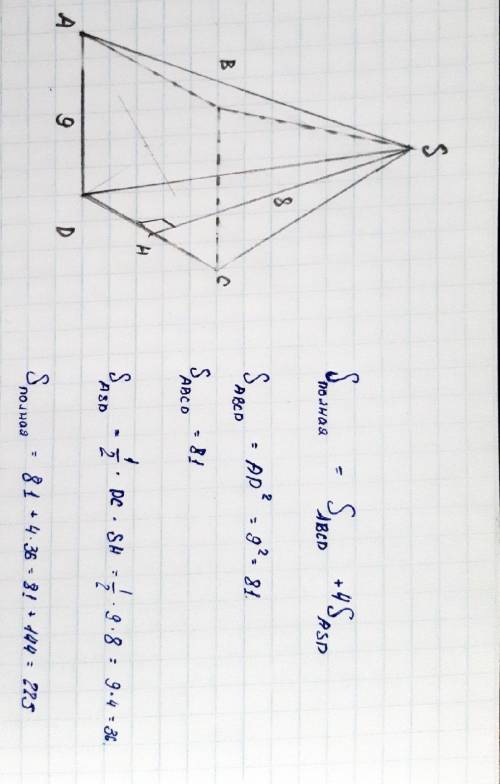 S
B
A
8
9
C
D
H
Sполная = SABCD + 4SASD
SABCD = AD² = 9² = 81.
SABCD = 81
SASD = 1/2 · DC · SH = 1/2 · 9 · 8 = 9 · 4 = 36.
Sполная = 81 + 4 · 36 = 81 + 144 = 225